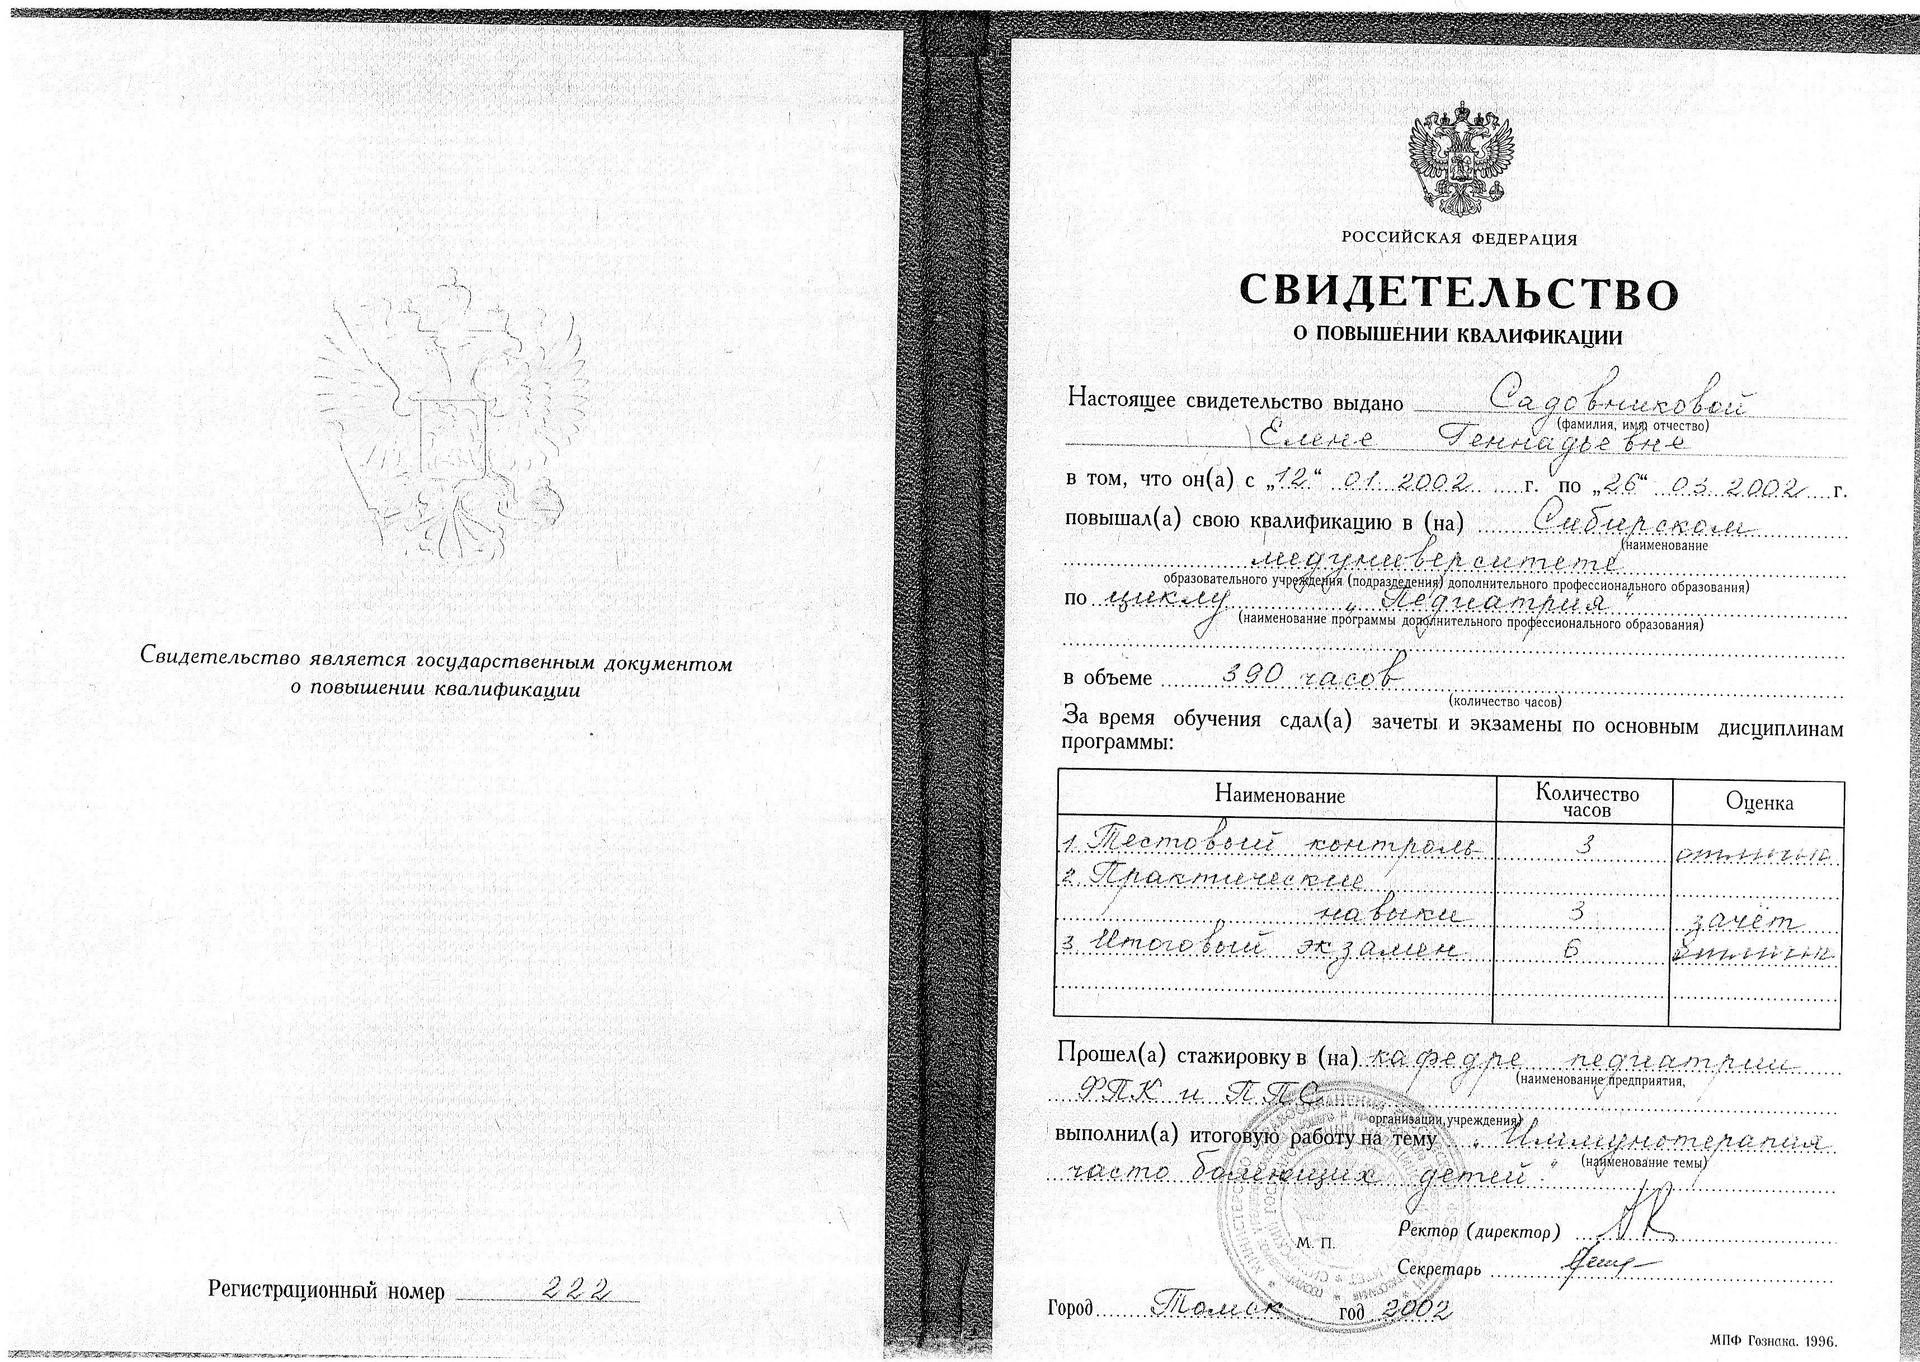 Свидетельство является государственным документом
о повышении квалификации
Регистрационный номер 222
РОССИЙСКАЯ ФЕДЕРАЦИЯ
СВИДЕТЕЛЬСТВО
О ПОВЫШЕНИИ КВАЛИФИКАЦИИ
Настоящее свидетельство выдано Садовниковой
(фамилия, имя, отчество)
Елене Геннадьевне
в том, что он(а) с „12“ 01 2002 г. по „26“ 03 2002 г.
повышал(а) свою квалификацию в (на) Сибирском
(наименование
медуниверситете
образовательного учреждения (подразделения) дополнительного профессионального образования)
по циклу „Педиатрия“
(наименование программы дополнительного профессионального образования)
в объеме 390 часов
(количество часов)
За время обучения сдал(а) зачеты и экзамены по основным дисциплинам
программы:
Наименование Количество часов Оценка
1. Тестовый контроль 3 отличн
2. Практические
навыки 3 зачёт
3. Итоговый экзамен 6 отличн
Прошел(а) стажировку в (на) кафедре педиатрии
(наименование предприятия,
ФПК и ППС
организации, учреждения)
выполнил(а) итоговую работу на тему „Иммунотерапия
(наименование темы)
часто болеющих детей“
Ректор (директор)
М. П.
Секретарь
Город Томск год 2002
МПФ Гознака. 1996.